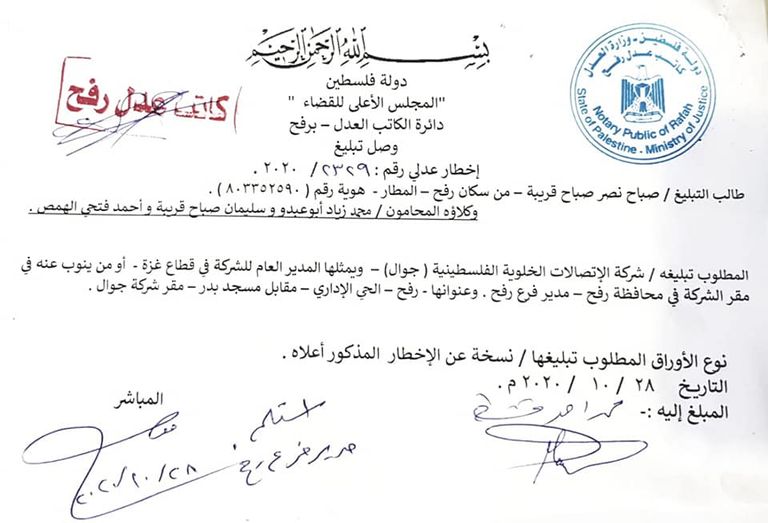 بسم الله الرحمن الرحيم
دولة فلسطين
"المجلس الأعلى للقضاء "
دائرة الكاتب العدل – برفح
وصل تبليغ
إخطار عدلي رقم : ٢٣٢٩/ ٢٠٢٠ .
كاتب عدل رفح
دولة فلسطين - وزارة العدل
كاتب عدل رفح
Notary Public of Rafah
State of Palestine - Ministry of Justice
طالب التبليغ / صباح نصر صباح قريبة – من سكان رفح – المطار - هوية رقم ( ٨٠٣٣٥٢٥٩٠ ) .
وكلاؤه المحامون / محمد زياد أبوعبدو و سليمان صباح قريبة و أحمد فتحي الهمص .
المطلوب تبليغه / شركة الإتصالات الخلوية الفلسطينية ( جوال) – ويمثلها المدير العام للشركة في قطاع غزة - أو من ينوب عنه في
مقر الشركة في محافظة رفح – مدير فرع رفح . وعنوانها - رفح – الحي الإداري – مقابل مسجد بدر – مقر شركة جوال .
نوع الأوراق المطلوب تبليغها / نسخة عن الإخطار المذكور أعلاه .
التاريخ ٢٨ / ١٠ / ٢٠٢٠ م .
المبلغ إليه :- محمد احمد
المباشر
استلم
مدير فرع رفح
٢٠٢٠/١٠/٢٨